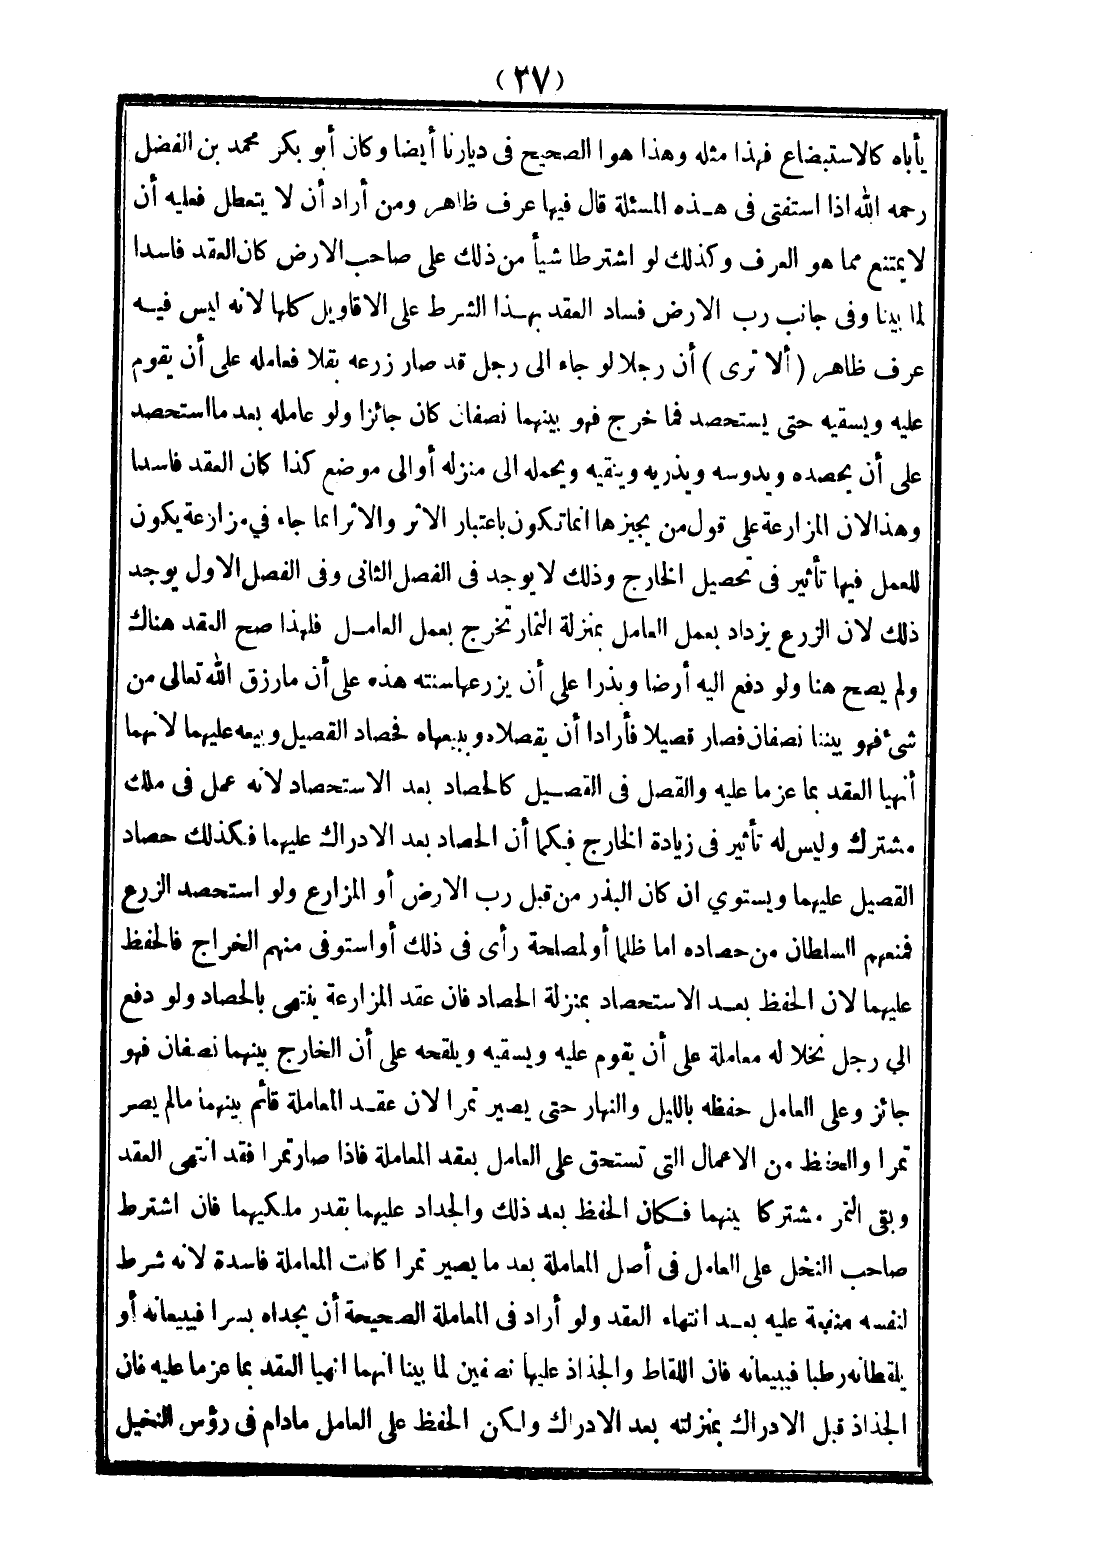 (٣٧)
يأباه كالاستبضاع فهذا مثله وهذا هوا الصحيح فى ديارنا أيضا وكان أبو بكر محمد بن الفضل
رحمه الله اذا استفتى فى هذه المسئلة قال فيها عرف ظاهر ومن أراد أن لا يتعطل فعليه أن
لا يمتنع مما هو العرف وكذلك لو اشترطا شيأ من ذلك على صاحب الارض كان العقد فاسدا
لما بينا وفى جانب رب الارض فساد العقد بهذا الشرط على الاقاويل كلها لانه ليس فيه
عرف ظاهر (ألا ترى) أن رجلا لو جاء الى رجل قد صار زرعه بقلا فعامله على أن يقوم
عليه ويسقيه حتى يستحصد فما خرج فهو بينهما نصفان كان جائزا ولو عامله بعد ما استحصد
على أن يحصده ويدوسه ويذريه وينقيه ويحمله الى منزله أو الى موضع كذا كان العقد فاسدا
وهذا لان المزارعة على قول من يجيزها انما تكون باعتبار الاثر والاثر انما جاء في مزارعة يكون
للعمل فيها تأثير فى تحصيل الخارج وذلك لا يوجد فى الفصل الثانى وفى الفصل الاول يوجد
ذلك لان الزرع يزداد بعمل العامل بمنزلة الثمار تخرج بعمل العامل فلهذا صح العقد هناك
ولم يصح هنا ولو دفع اليه أرضا وبذرا على أن يزرعها سنته هذه على أن ما رزق الله تعالى من
شىء فهو بيننا نصفان فصار قصيلا فأرادا أن يقصلاه ويبيعاه فحصاد القصيل وبيعه عليهما لانهما
أنهيا العقد بما عزما عليه والقصل فى القصيل كالحصاد بعد الاستحصاد لانه عمل فى ملك
مشترك وليس له تأثير فى زيادة الخارج فكما أن الحصاد بعد الادراك عليهما فكذلك حصاد
القصيل عليهما ويستوي ان كان البذر من قبل رب الارض أو المزارع ولو استحصد الزرع
فمنعهم السلطان من حصاده اما ظلما أو لمصلحة رأى فى ذلك أو استوفى منهم الخراج فالحفظ
عليهما لان الحفظ بعد الاستحصاد بمنزلة الحصاد فان عقد المزارعة ينتهى بالحصاد ولو دفع
الي رجل نخلا له معاملة على أن يقوم عليه ويسقيه ويلقحه على أن الخارج بينهما نصفان فهو
جائز وعلى العامل حفظه بالليل والنهار حتى يصير تمرا لان عقد المعاملة قائم بينهما مالم يصر
تمرا والحفظ من الاعمال التى تستحق على العامل بعقد المعاملة فاذا صار تمرا فقد انتهى العقد
وبقى التمر مشتركا بينهما فكان الحفظ بعد ذلك والجداد عليهما بقدر ملكيهما فان اشترط
صاحب النخل على العامل فى أصل المعاملة بعد ما يصير تمرا كانت المعاملة فاسدة لانه شرط
لنفسه منفعة عليه بعد انتهاء العقد ولو أراد فى المعاملة الصحيحة أن يجداه بسرا فيبيعانه أو
يلقطانه رطبا فيبيعانه فان اللقاط والجذاذ عليها نصفين لما بينا انهما انهيا العقد بما عزما عليه فان
الجذاذ قبل الادراك بمنزلته بعد الادراك ولكن الحفظ على العامل مادام فى رؤس النخيل